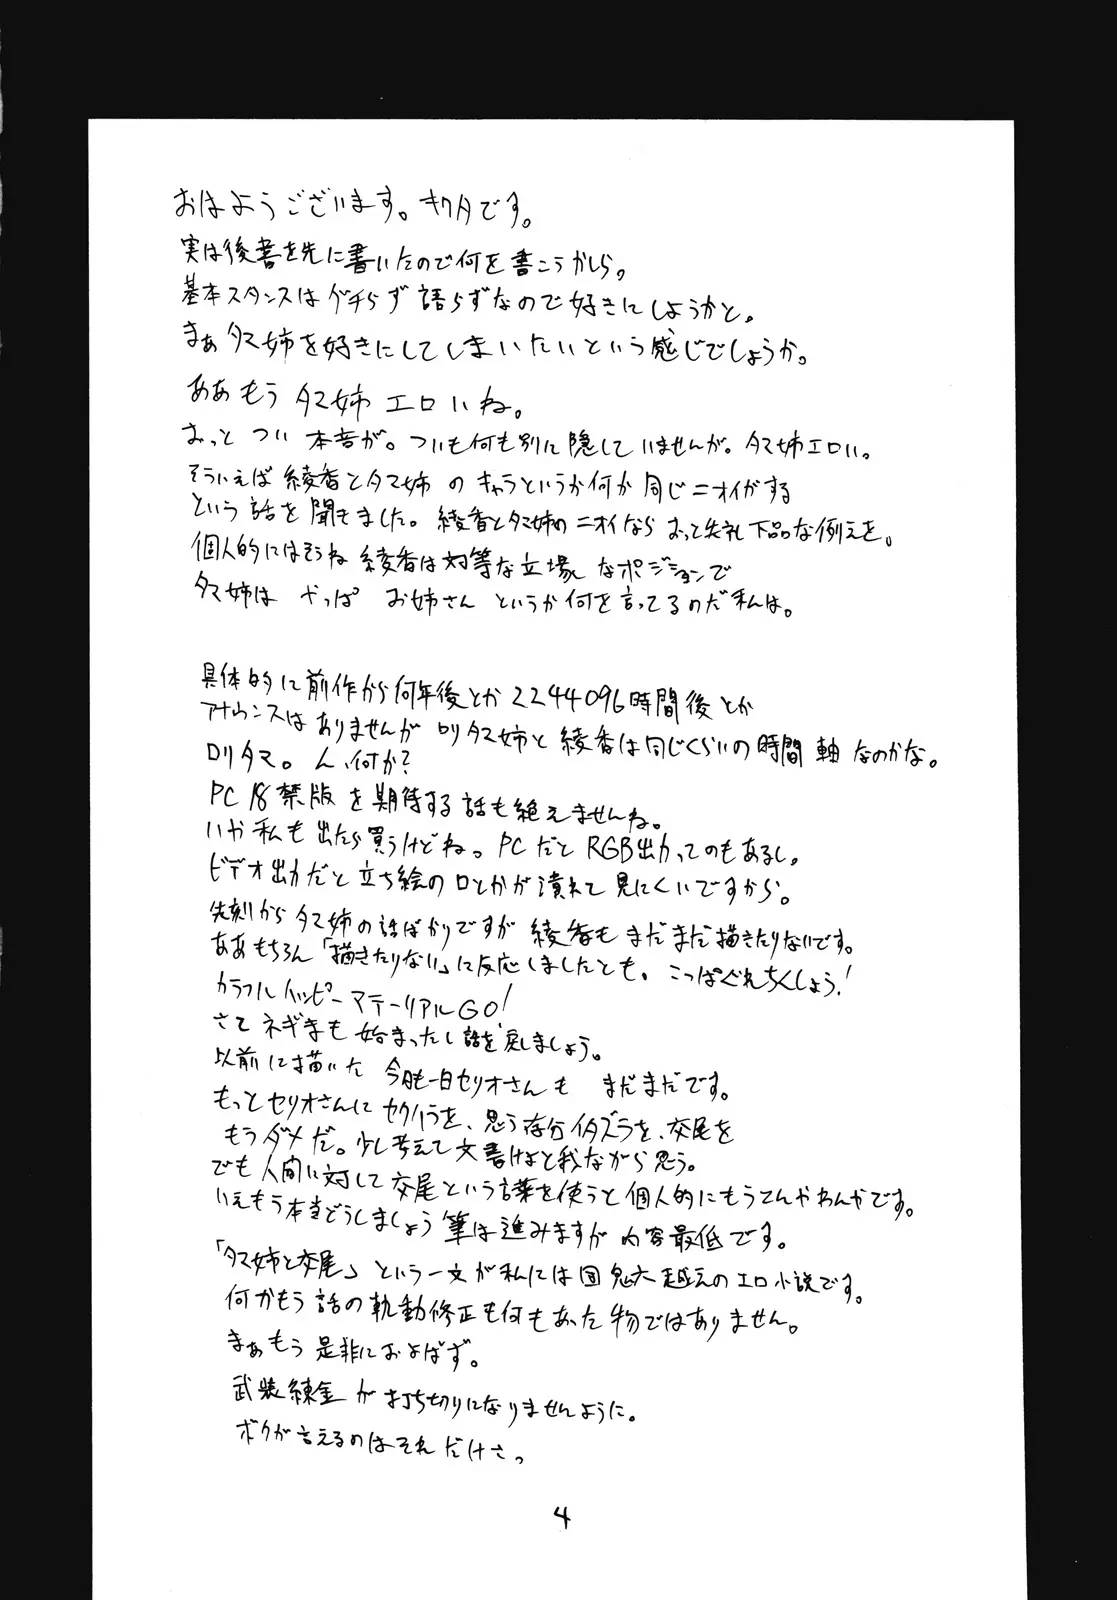 おはようございます。キクタです。
実は後書を先に書いたので何を書こうかしら。
基本スタンスはグチらず語らずなので好きにしようかと。
まぁタマ姉を好きにしてしまいたいという感じでしょうか。
ああもうタマ姉エロいね。
おっと つい 本音が。ついも何も別に隠していませんが。タマ姉エロい。
そういえば綾香とタマ姉のキャラというか何か同じニオイがする
という話を聞きました。綾香とタマ姉のニオイなら おっと失礼下品な例えを。
個人的にはそうね綾香は対等な立場なポジションで
タマ姉は やっぱ お姉さん というか何を言ってるのだ私は。
具体的に前作から何年後とか2244096時間後とか
アナウンスはありませんがロリタマ姉と綾香は同じくらいの時間軸なのかな。
ロリタマ。ん、何か?
PC18禁版を期待する話も絶えませんね。
いや私も出たら買うけどね。PCだとRGB出力ってのもあるし。
ビデオ出力だと立ち絵の口とかが潰れて見にくいですから。
先刻からタマ姉の話ばかりですが綾香もまだまだ描きたりないです。
ああもちろん「描きたりない」に反応しましたとも。こっぱぐれちくしょう!
カラフルハッピーマテーリアルGO!
さてネギまも始まったし話を戻しましょう。
以前に描いた 今日も一日セリオさんも まだまだです。
もっとセリオさんにセクハラを、思う存分イタズラを、交尾を
もうダメだ。少し考えて文書けよと我ながら思う。
でも人間に対して交尾という言葉を使うと個人的にもうてんやわんやです。
いえもう本当どうしましょう筆は進みますが内容最低です。
「タマ姉と交尾」という一文が私には団鬼六越えのエロ小説です。
何かもう話の軌動修正も何もあった物ではありません。
まぁもう是非におよばず。
武装練金が打ち切りになりませんように。
ボクが言えるのはそれだけさ。
4